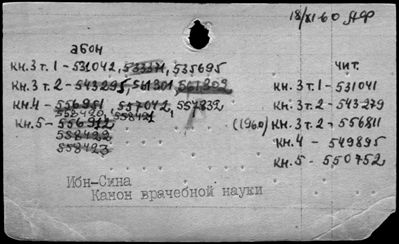 18/XI-60
абон
кн.3 т.1-531042, 535695
чит.
кн.3 т.2-543295, 561301 561302
кн.3 т.1-531041
кн.4- 556951 557042, 557832
кн.3 т.2-543279
558420, 558421
кн.5- 556912
(1960) кн.3 т.2-556811
558422
кн.4 - 549895
558423
кн.5- 550752
Ибн-Сина
Канон врачебной науки